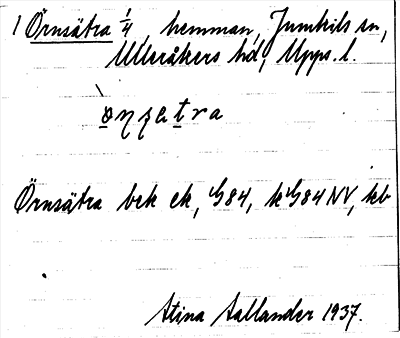 1 Örnsätra 1/4, hemman, Jumkils sn,
Ulleråkers hd, Upps. l.
Örnsätra bek ek, G84, kG84 NV, kb
Stina Sallander 1937.